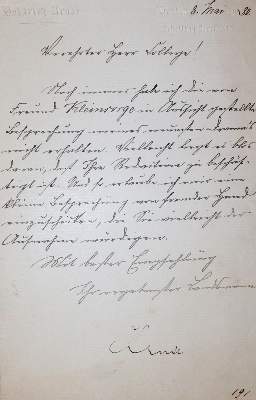 6. Mai
Verehrter Herr College!
Noch immer habe ich die von
Freund Kleinsorge in Aussicht gestellte
Besprechung meines neuesten Drama's
nicht erhalten. Vielleicht liegt es blos
daran, daß Ihre Redaktion zu beschäf-
tigt ist. Und so erlaube ich mir eine
kleine Besprechung von fremder Hand
einzuschicken, die Sie vielleicht der
Aufnahme würdigen.
Mit bester Empfehlung
Ihr ergebenster Landsmann
191